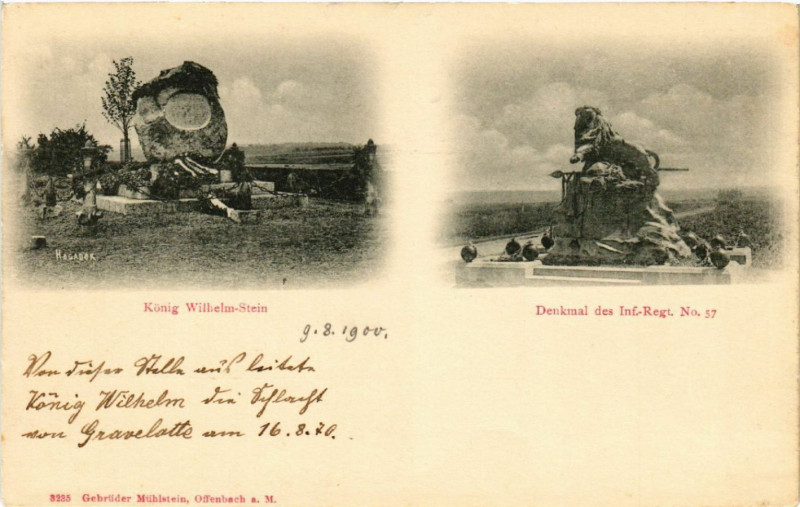 Rogador
König Wilhelm-Stein
Denkmal des Inf.-Regt. No. 57
9.8.1900.
Von dieser Stelle aus leitete
König Wilhelm die Schlacht
von Gravelotte am 16.8.70.
3235 Gebrüder Mühlstein, Offenbach a. M.